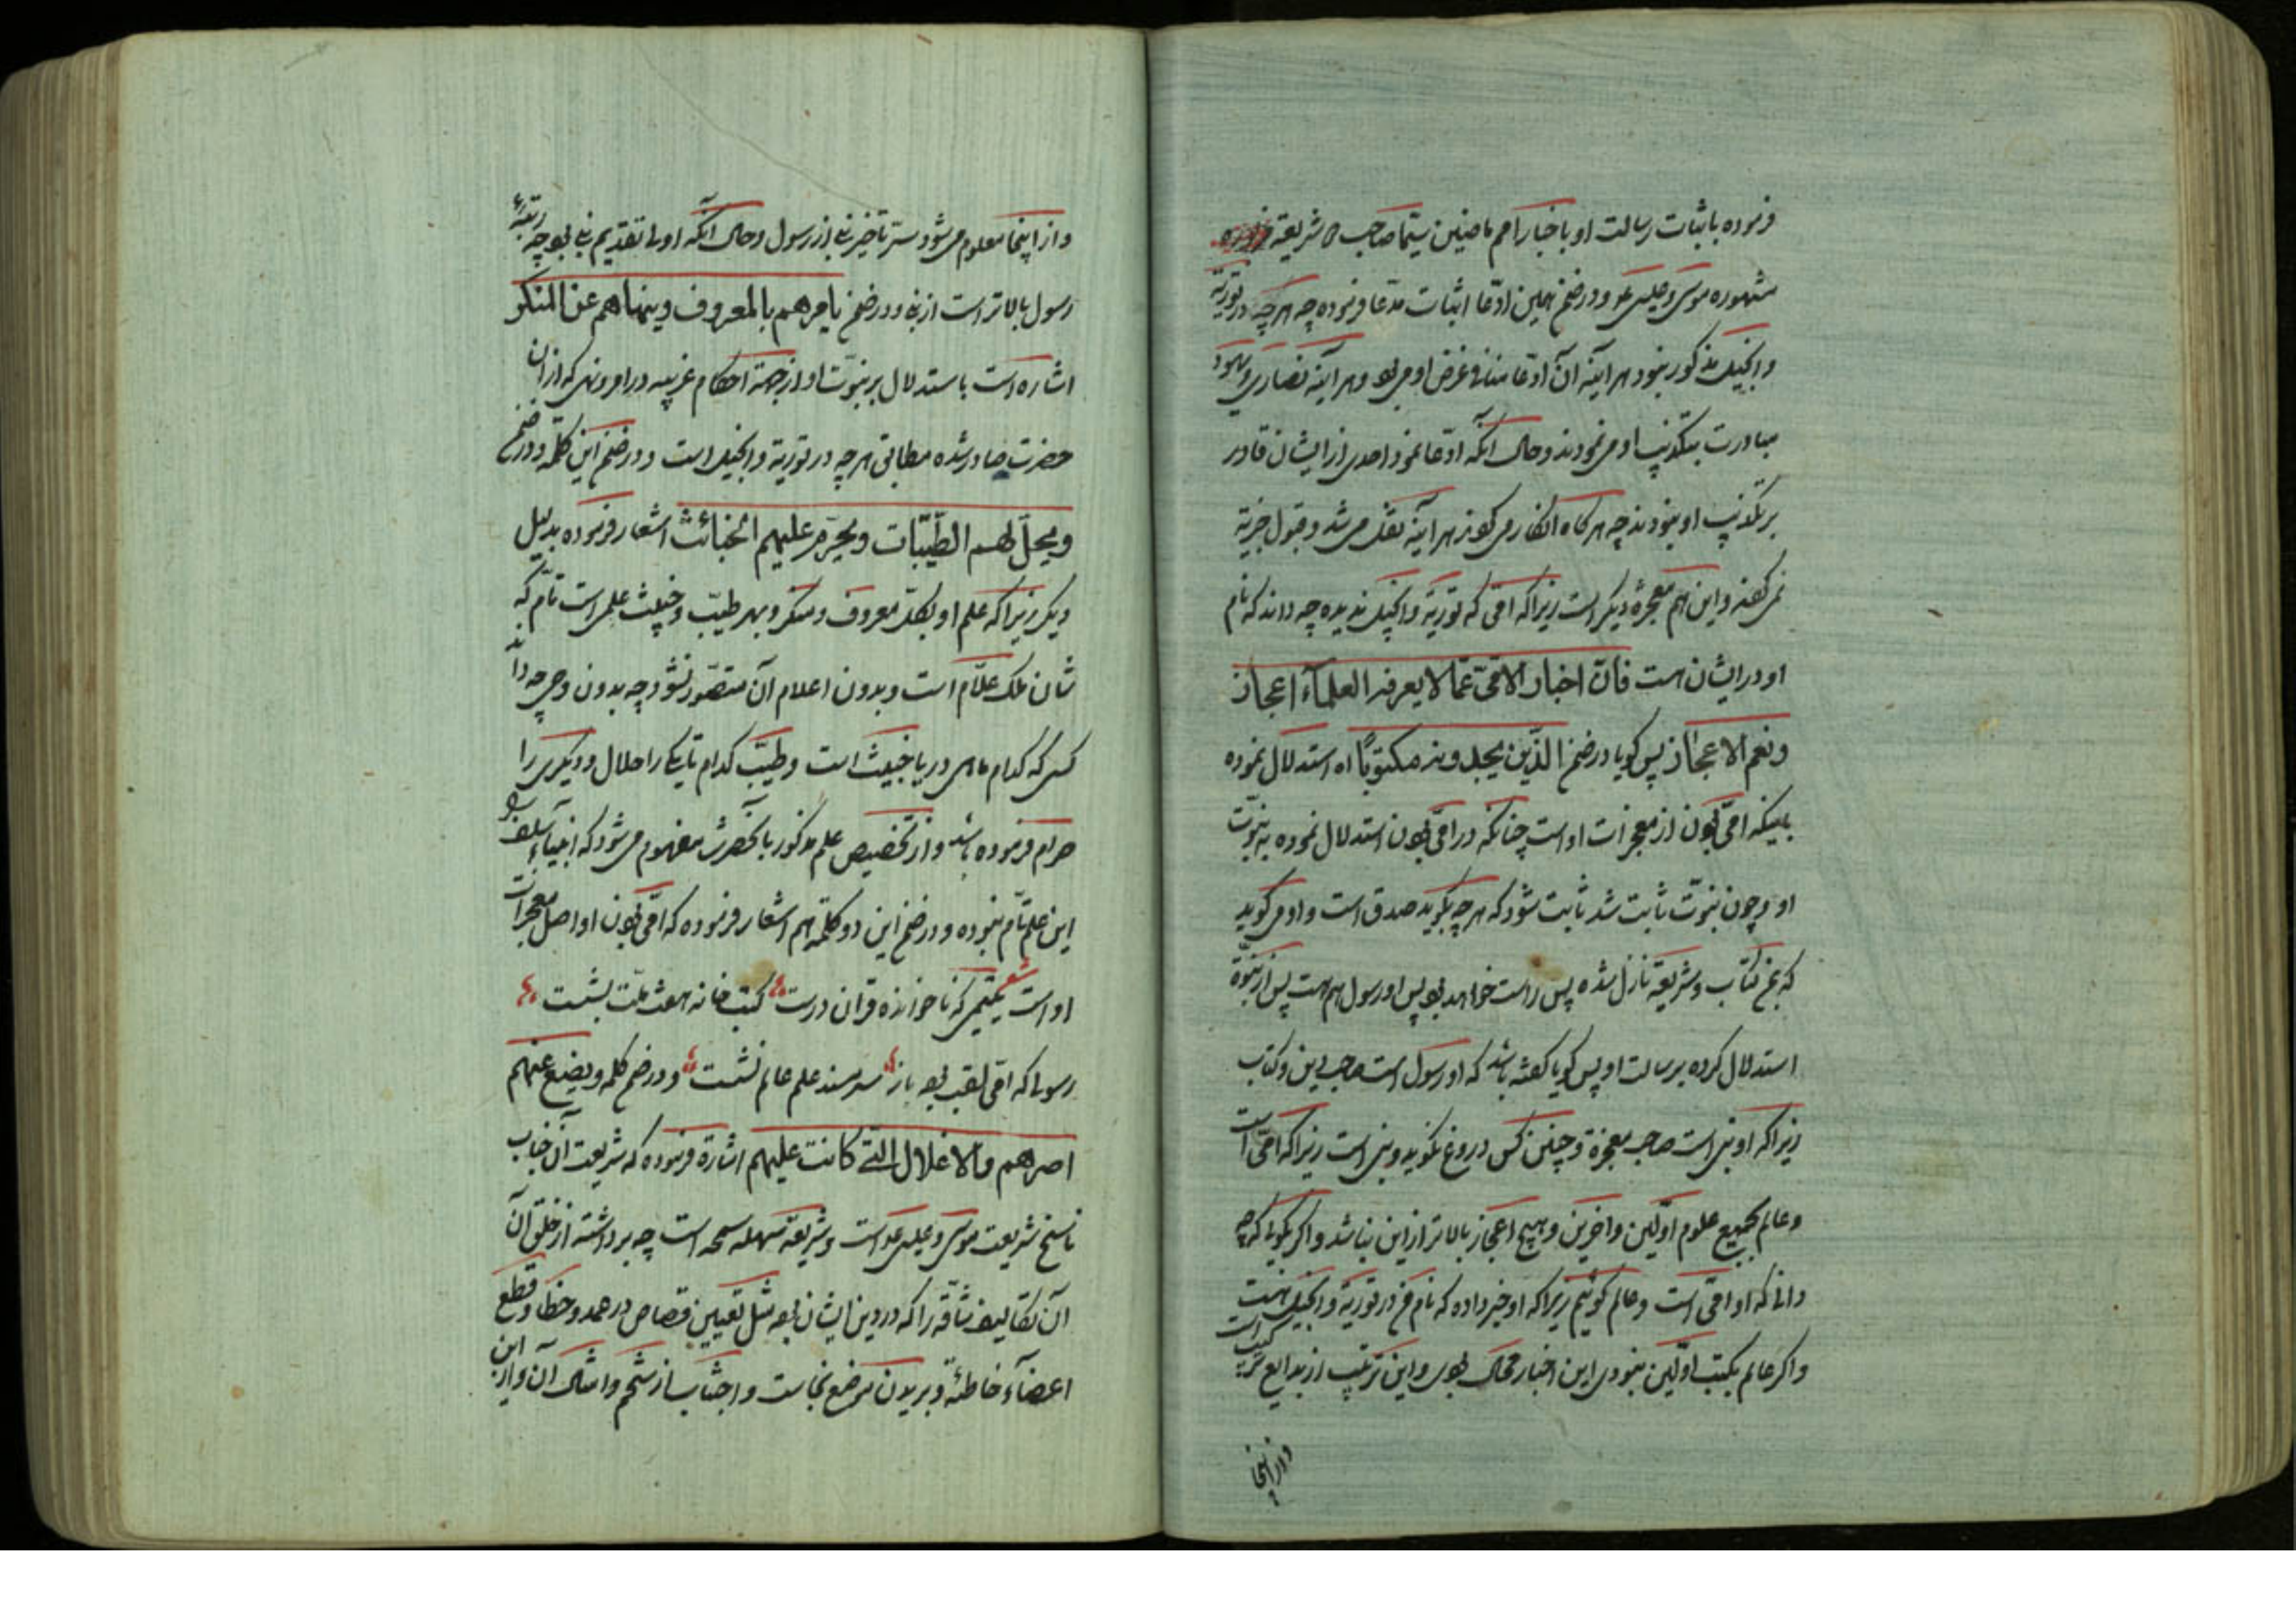 فرموده باثبات رسالت او باخبار امم ماضین سیّما صاحب شریعة
مشهوره موسی و عیسی ع و در ضمن همین ادّعا اثبات مدّعا فرموده چه هرچه در توریة
و انجیل مذکور نبود هر آینه آن ادّعا منافی غرض او می بود و هر آینه نصاری و یهود
مبادرت بتکذیب او می نمودند و حال آنکه ادّعا نمود احدی از ایشان قادر
بر تکذیب او نبودند چه هرکاه انکار می کردند هر آینه نقل می شد و قبول جزیة
نمی کردند و این هم معجزهٔ دیکر است زیرا که امّی که توریة و انجیل ندیده چه داند که نام
او در ایشان است فانّ اخبار الامّی عمّا لا یعرفه العلمآء اعجاز
و نعم الاعجاز پس کویا در ضمن الّذین یجدونه مکتوبًا اه استدلال نموده
باینکه امّی بودن از معجزات او است چنانکه در امّی بودن استدلال نموده به نبوّت
او و چون نبوّت ثابت شد ثابت شود که هرچه بکوید صدق است و او می کوید
که بمن کتاب و شریعة نازل شده پس راست خواهد بود پس او رسول هم هست پس از نبوّة
استدلال کرده برسالت او پس کویا کفته باشد که او رسول است صاحب دین و کتاب
زیرا که او نبی است صاحب معجزة و چنین کس دروغ نکوید و نبی است زیرا که امّی است
و عالم بجمیع علوم اوّلین و آخرین و هیچ اعجاز بالاتر از این نباشد و اکر بکوئی که از چه
دانی که او امّی است و عالم کوئیم زیرا که او خبر داده که نام من در توریة و انجیل هست
و اکر عالم بکتب اوّلین نبودی این اخبار محال بودی و این ترتیب از بدایع
و از اینجا
و از اینجا معلوم می شود سرّ تأخیر نبی از رسول و حال آنکه اولی تقدیم نبی بود چه رتبهٔ
رسول بالاتر است از نبی و در ضمن یامرهم بالمعروف و ینهاهم عن المنکر
اشاره است باستدلال بر نبوّت او از جهة احکام غریبه در امر و نهی که از آن
حضرت صادر شده مطابق هرچه در توریة و انجیل است و در ضمن این کلمه و در ضمن
و یحلّ لهم الطّیّبات و یحرّم علیهم الخبائث اشعار فرموده بدلیل
دیکر زیرا که علم او بکلّ معروف و منکر و بهر طیّب و خبیث علمی است تامّ که
شان ملک علّام است و بدون اعلام آن متصوّر نشود چه بدون وحی چه داند
کسی که کدام ماهی دریا خبیث است و طیّب کدام تا یکی را حلال و دیکری را
حرام فرموده باشد و از تخصیص علم مذکور بآنحضرت مفهوم می شود که انبیآء سلف را
این علم تامّ نبوده و در ضمن این دو کلمه هم اشعار فرموده که امّی بودن او اصل معجزات
او است شعر یتیمی که ناخوانده قرآن درست کتب خانه هفت ملّت بشست
رسولی که امّی لقب بود باز سر مسند علم عالم نشست و در ضمن کلمه و یضع عنهم
اصرهم و الاغلال الّتی کانت علیهم اشارة فرموده که شریعت آن جناب
ناسخ شریعت موسی و عیسی ع است و شریعة سهله سمحه است چه برداشته از خلق آن
آن تکالیف شاقّه را که در دین ایشان بود مثل تعیین قصاص در عمد و خطا و قطع
اعضآء خاطئه و بریدن موضع نجاست و اجتناب از شحم و امثال آن و از این